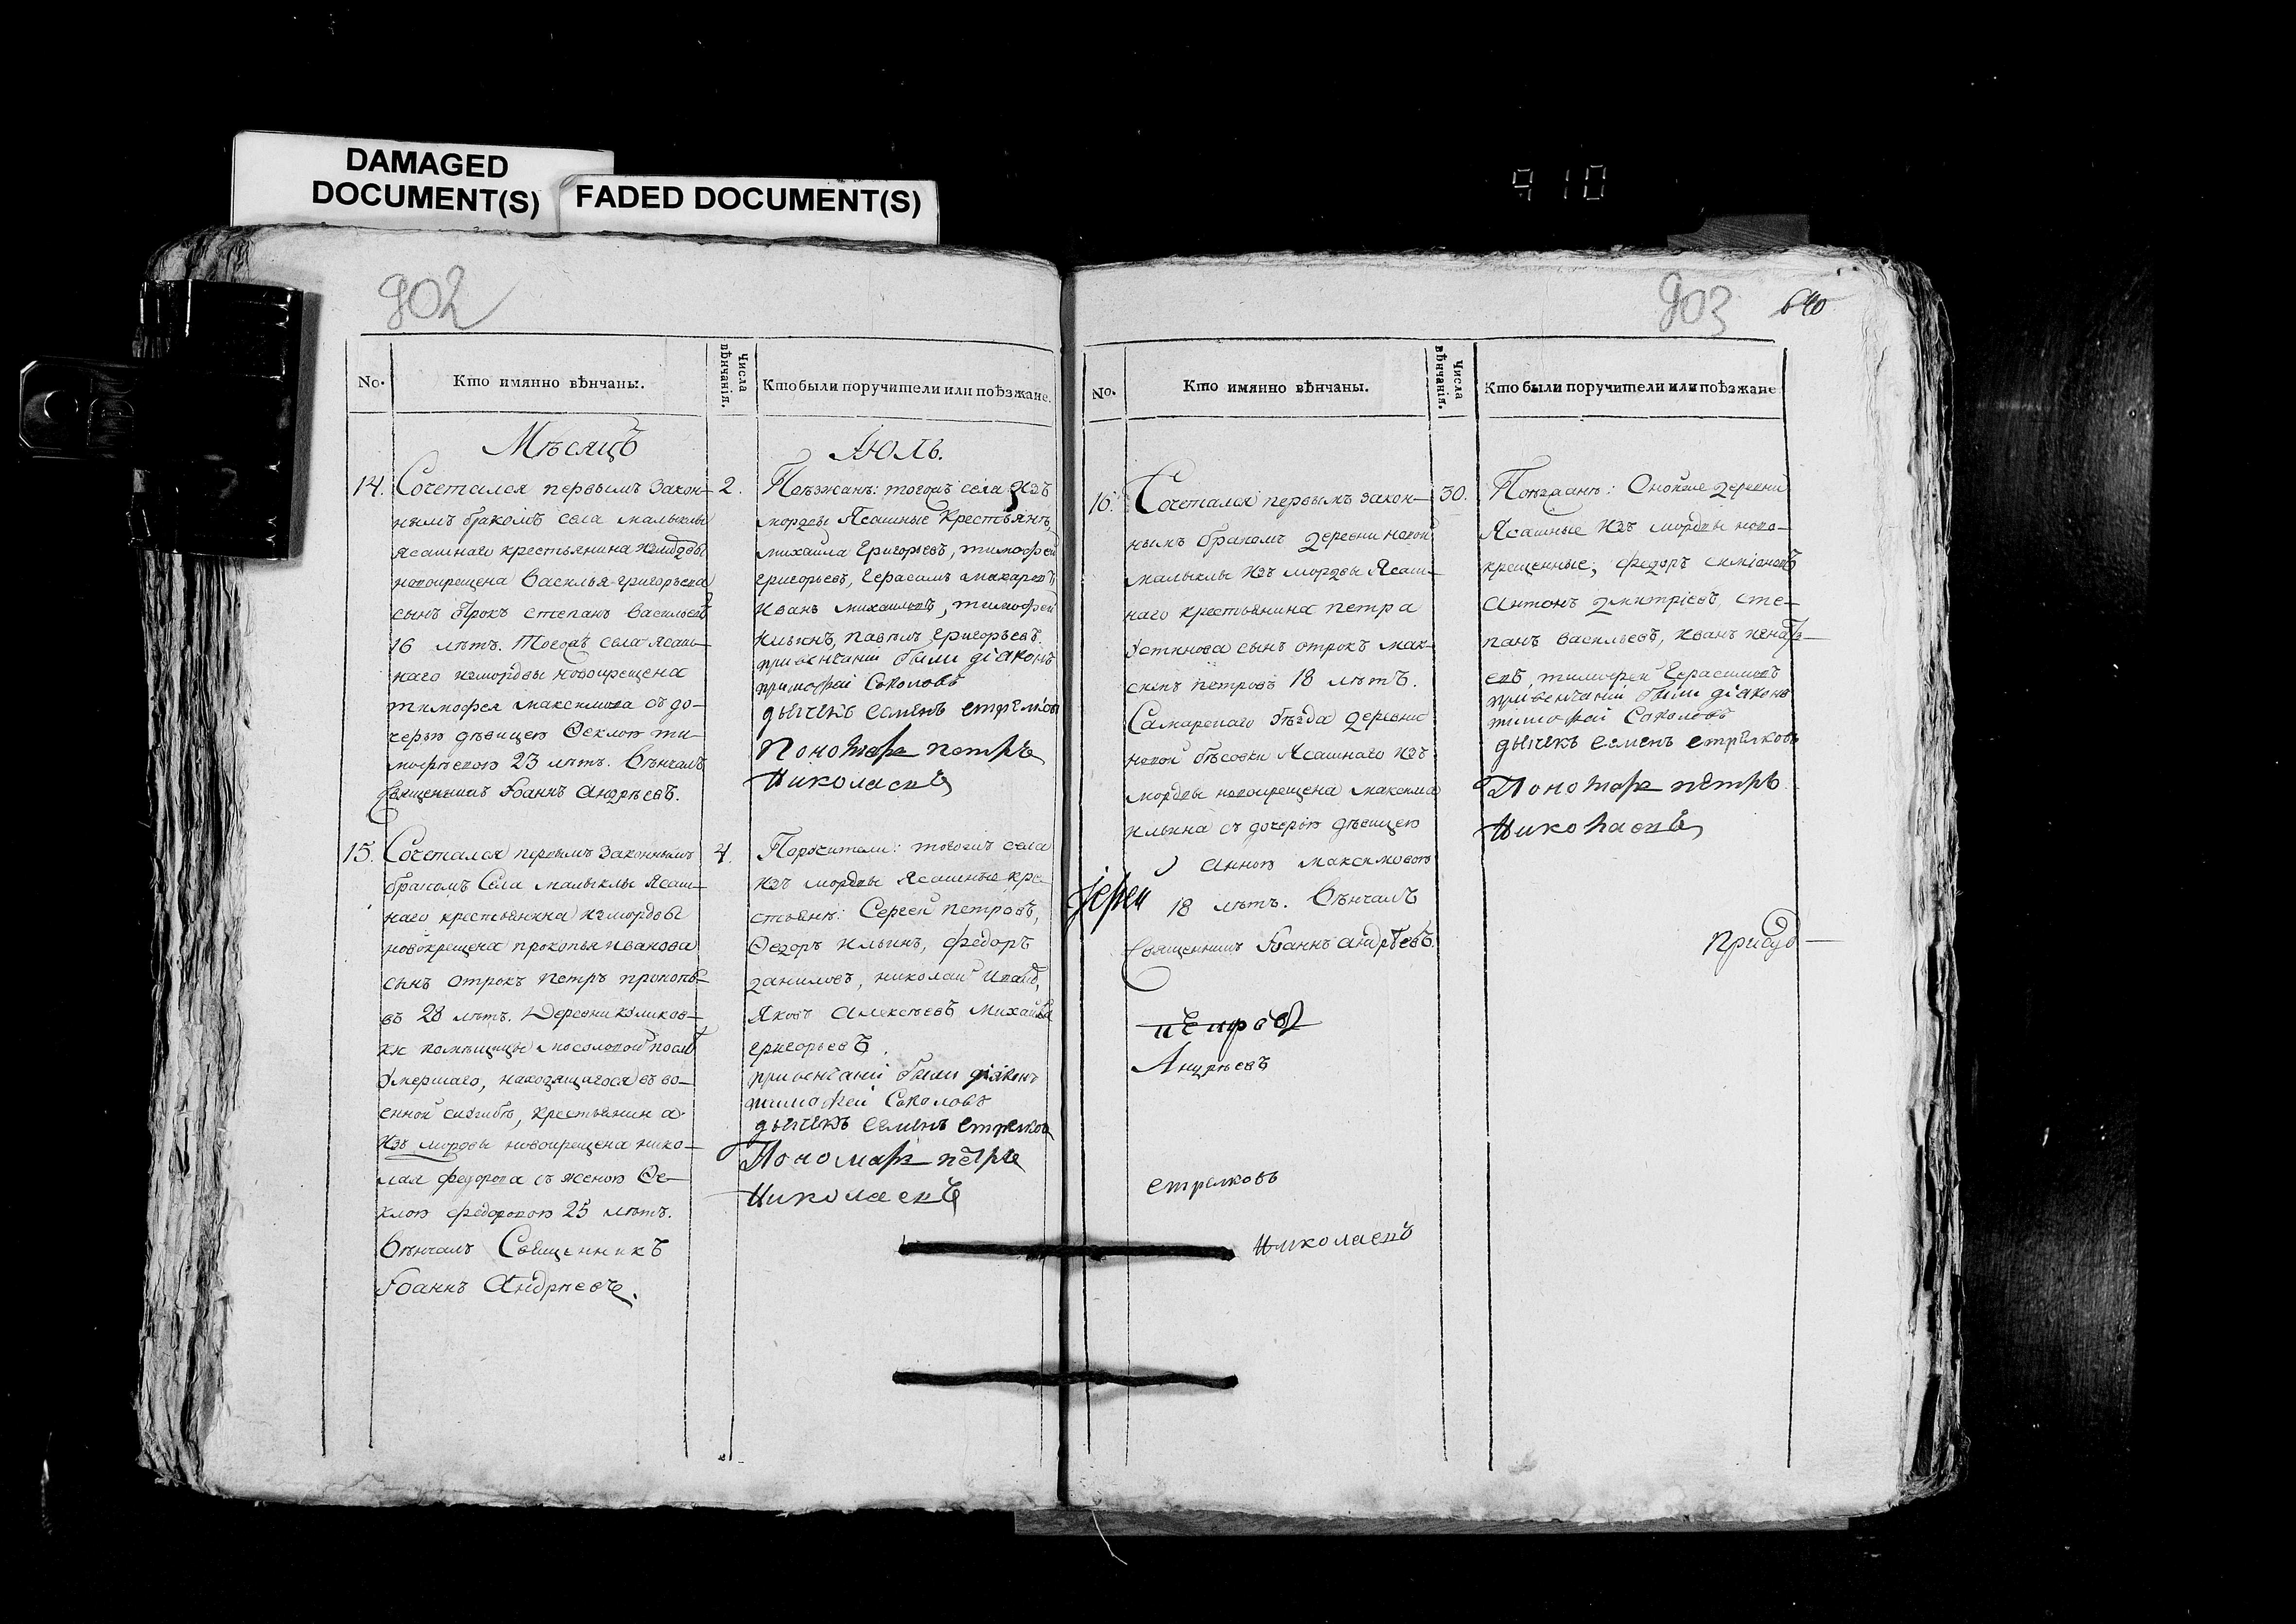 DAMAGED
DOCUMENT(S)
FADED DOCUMENT(S)
910
902
No.
Кто имянно вѣнчаны.
Числа
вѣнчанія.
Кто были поручители или поѣзжане.
Мѣсяцъ
Июль.
14.
Сочетался первымъ закон-
нымъ бракомъ села малыклы
ясашнаго крестьянина измордвы
новокрещена Василья григорьева
сынъ отрокъ степанъ васильевъ
16 лѣтъ. Тогожъ села ясаш-
наго измордвы новокрещена
тимофея максимова съ до-
черью дѣвицею Ѳеклою ти-
мофѣевою 23 лѣтъ. Вѣнчалъ
Священникъ Іоаннъ Андрѣевъ.
2.
Поѣзжанѣ: тогожъ села изъ
мордвы Ясашные крестьянѣ,
михаила григорьевъ, тимофей
григорьевъ, герасимъ макаровъ
иванъ михаиловъ, тимофей
ильинъ, павелъ григорьевъ.
привенчаніи были діаконъ
тимофей Соколовъ
дьячекъ семенъ стрелковъ
Пономарь петръ
Николаевъ
15.
Сочетался первымъ законнымъ
бракомъ села малыклы ясаш-
наго крестьянина измордвы
новокрещена прокопья иванова
сынъ отрокъ петръ прокопь-
въ 28 лѣтъ. Деревни куликов-
ки помѣщицы мосоловой послѣ
умершаго, находящагося въ во-
енной службѣ, крестьянина
изъ мордвы новокрещена нико-
лая федорова съ женою Ѳе-
клою федоровою 25 лѣтъ.
Вѣнчалъ Священникъ
Іоаннъ Андрѣевъ.
4.
Поручители: тогожъ села
изъ мордвы ясашные кре-
стьянѣ: Сергей петровъ,
Ѳедоръ ильинъ, федоръ
даниловъ, николай
Яковъ алексѣевъ михайла
григорьевъ.
привенчаніи были діаконъ
тимофей Соколовъ
дьячекъ семенъ стрелковъ
Пономарь петръ
Николаевъ
903
640
No.
Кто имянно вѣнчаны.
Числа
вѣнчанія.
Кто были поручители или поѣзжане
16.
Сочетался первымъ закон-
нымъ бракомъ деревни новой
малыклы изъ мордвы Ясаш-
наго крестьянина петра
устинова сынъ отрокъ мак-
симъ петровъ 18 лѣтъ.
Самарскаго уѣзда деревни
новой бѣсовки Ясашнаго изъ
мордвы новокрещена максима
ильина съ дочерью дѣвицею
анною максимовою
18 лѣтъ. Вѣнчалъ
Священникъ Іоаннъ андрѣевъ.
30.
Поѣзжанѣ: Оной же деревни
Ясашные изъ мордвы ново-
крещенные; федоръ симіоновъ
антонъ дмитріевъ, сте-
панъ васильевъ, иванъ
евъ, тимофей герасимовъ
привенчаніи были діаконъ
тимофей Соколовъ
дьячекъ семенъ стрелковъ
Пономарь петръ
Николаевъ
іерей
Андрѣевъ
стрелковъ
Николаевъ